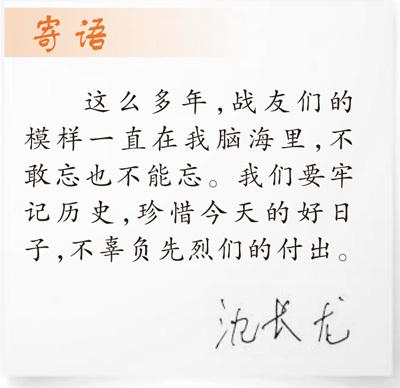 寄语
这么多年,战友们的
模样一直在我脑海里,不
敢忘也不能忘。我们要牢
记历史,珍惜今天的好日
子,不辜负先烈们的付出。
沈长龙